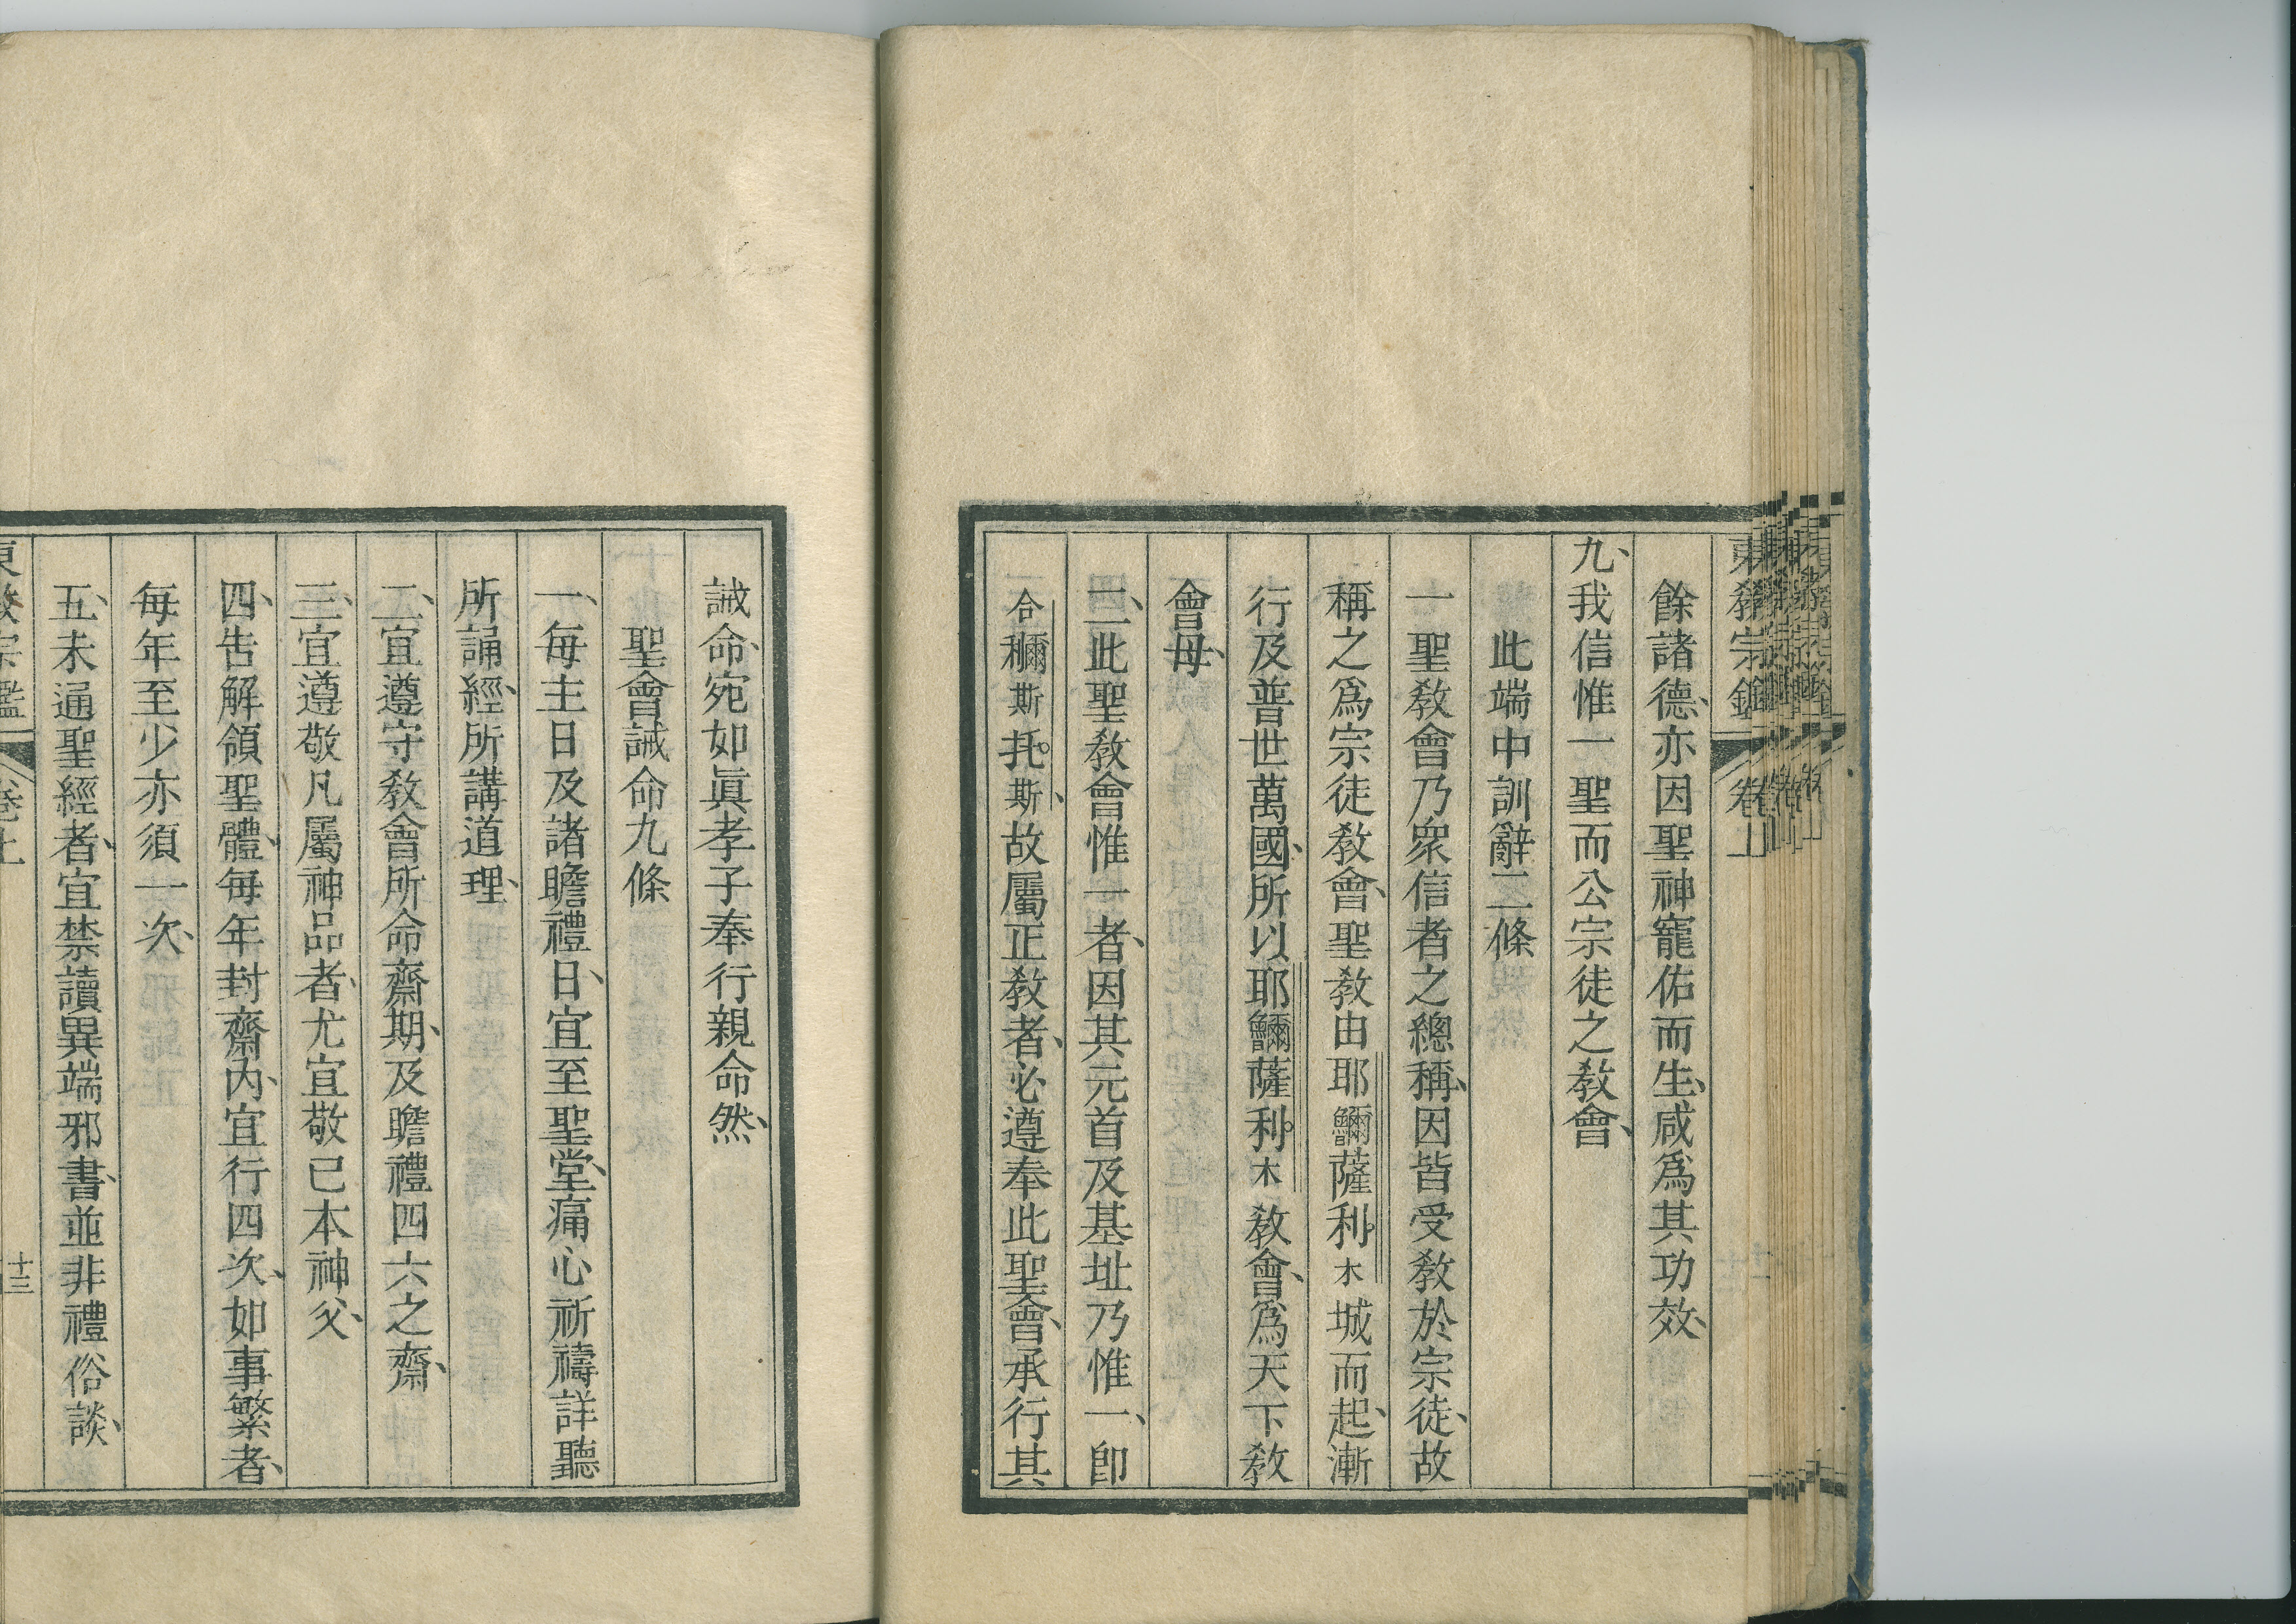 東教宗鑑 卷上
餘諸德、亦因聖神寵佑而生、咸爲其功效、
九、我信惟一聖而公宗徒之教會、
此端中訓辭二條
一聖教會乃衆信者之總稱、因皆受教於宗徒、故
稱之爲宗徒教會、聖教由耶薩利木城而起、漸
行及普世萬國、所以耶薩利木教會、爲天下教
會母、
二、此聖教會惟一者、因其元首及基址乃惟一、卽
合穪斯托斯、故屬正教者、必遵奉此聖會、承行其
誡命、宛如眞孝子奉行親命然、
聖會誡命九條
一、每主日及諸瞻禮日、宜至聖堂、痛心祈禱詳聽
所誦經、所講道理、
二、宜遵守教會所命齋期、及瞻禮四六之齋、
三、宜遵敬凡屬神品者、尤宜敬已本神父、
四、告解領聖體、每年封齋內、宜行四次、如事繁者、
每年至少亦須一次、
五、未通聖經者、宜禁讀異端邪書、並非禮俗談、
東教宗鑑 卷上 十三